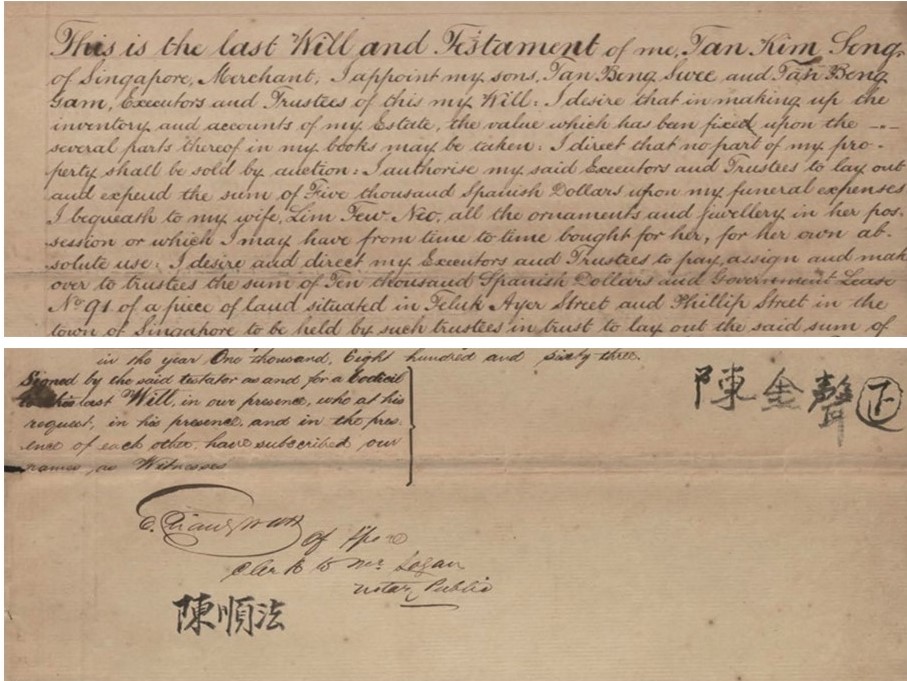 This is the last Will and Testament of me, Tan Kim Seng,
of Singapore, Merchant, I appoint my sons, Tan Beng Swee and Tan Beng
Gam, Executors and Trustees of this my Will: I desire that in making up the
inventory and accounts of my Estate, the value which has been fixed upon the
several parts thereof in my books may be taken: I direct that no part of my pro-
perty shall be sold by auction: I authorise my said Executors and Trustees to lay out
and expend the sum of Five thousand Spanish Dollars upon my funeral expenses
I bequeath to my wife, Lim Tew Neo, all the ornaments and jewellery in her pos-
session or which I may have from time to time bought for her, for her own ab-
solute use: I desire and direct my Executors and Trustees to pay, assign and mak
over to trustees the sum of Ten thousand Spanish Dollars and Government Lease
No 91 of a piece of land situated in Teluk Ayer Street and Phillip Street in the
town of Singapore to be held by such trustees in trust to lay out the said sum of
in the year One thousand, Eight hundred and sixty three.
Signed by the said testator as and for a Codicil
to his last Will, in our presence, who at his
request, in his presence, and in the pres-
ence of each other, have subscribed our
names, as Witnesses
陳金聲
Clerk to Mr. Logan
Notary Public
陳順法